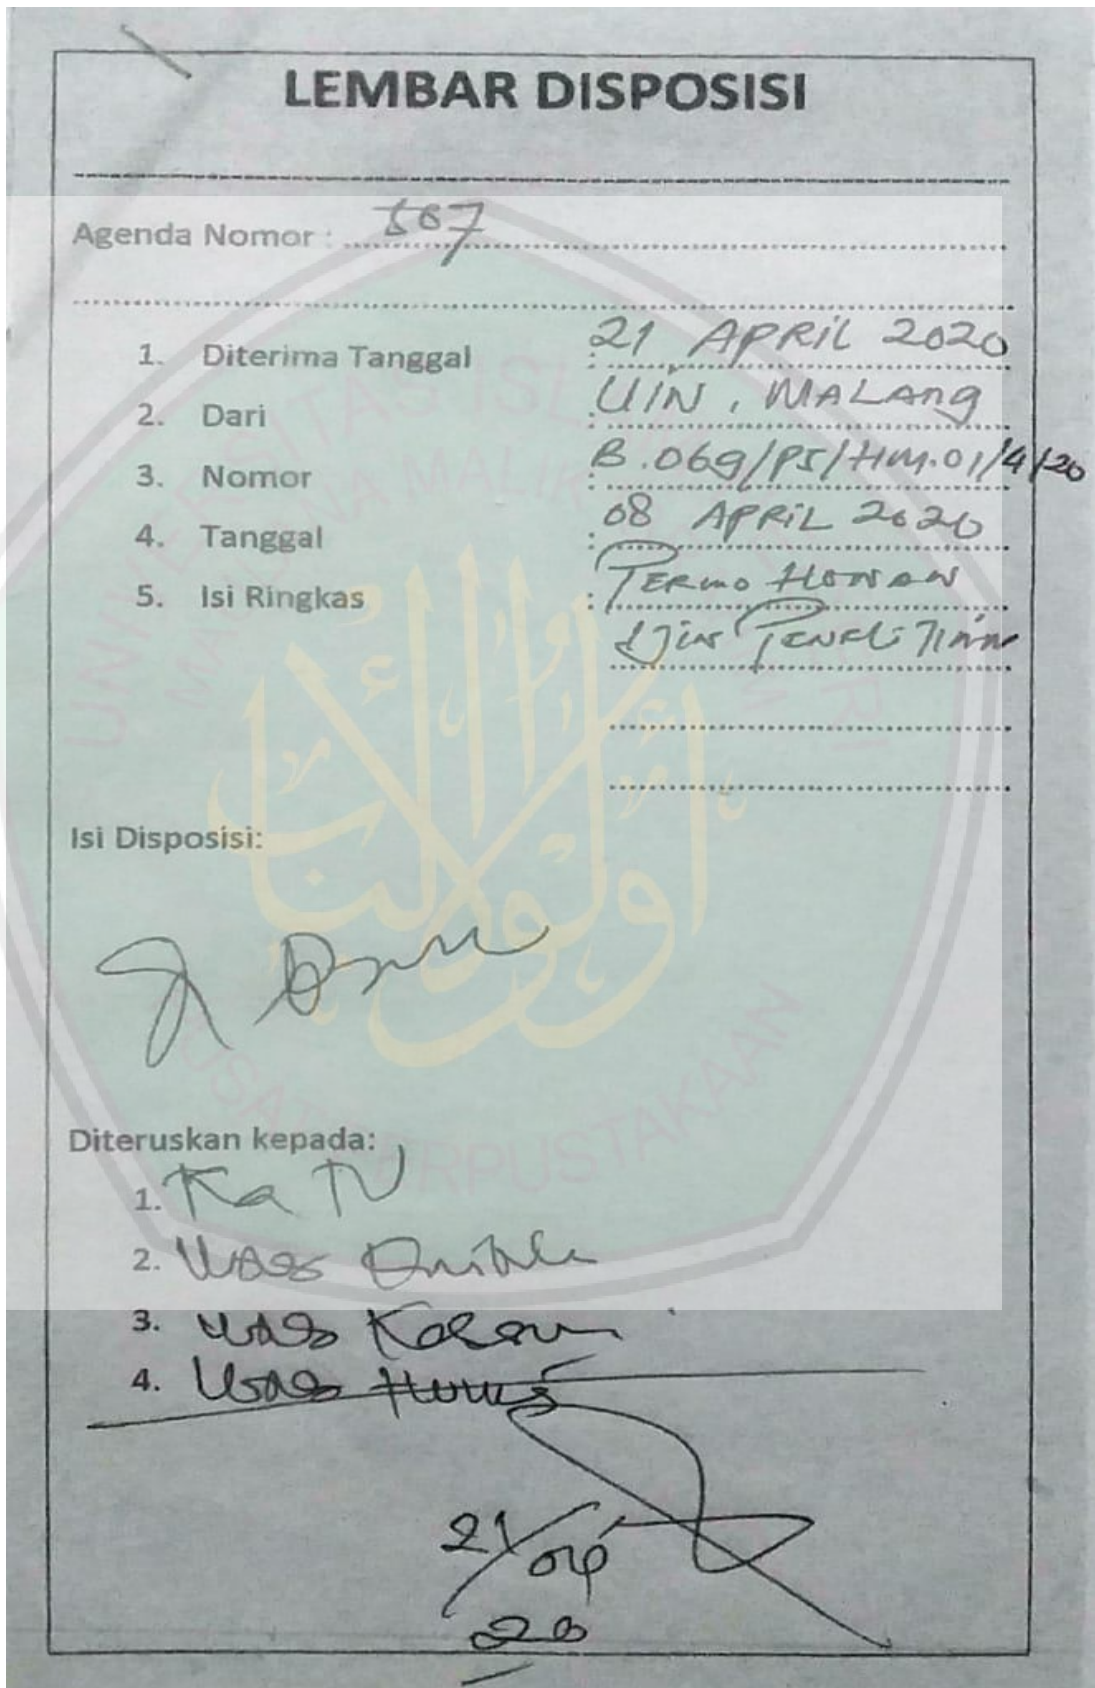 LEMBAR DISPOSISI
Agenda Nomor : 567
1. Diterima Tanggal : 21 APRIL 2020
2. Dari : UIN, MALANG
3. Nomor : B.069/PS/HM.01/4/20
4. Tanggal : 08 APRIL 2020
5. Isi Ringkas : PERMOHONAN
IJIN PENELITIAN
Isi Disposisi:
Diteruskan kepada:
1. Ka TU
2. Waks
3. Waks
4. Waks Humas
21/04
20
UNIVERSITAS ISLAM NEGERI
MAULANA MALIK IBRAHIM
PUSAT PERPUSTAKAAN